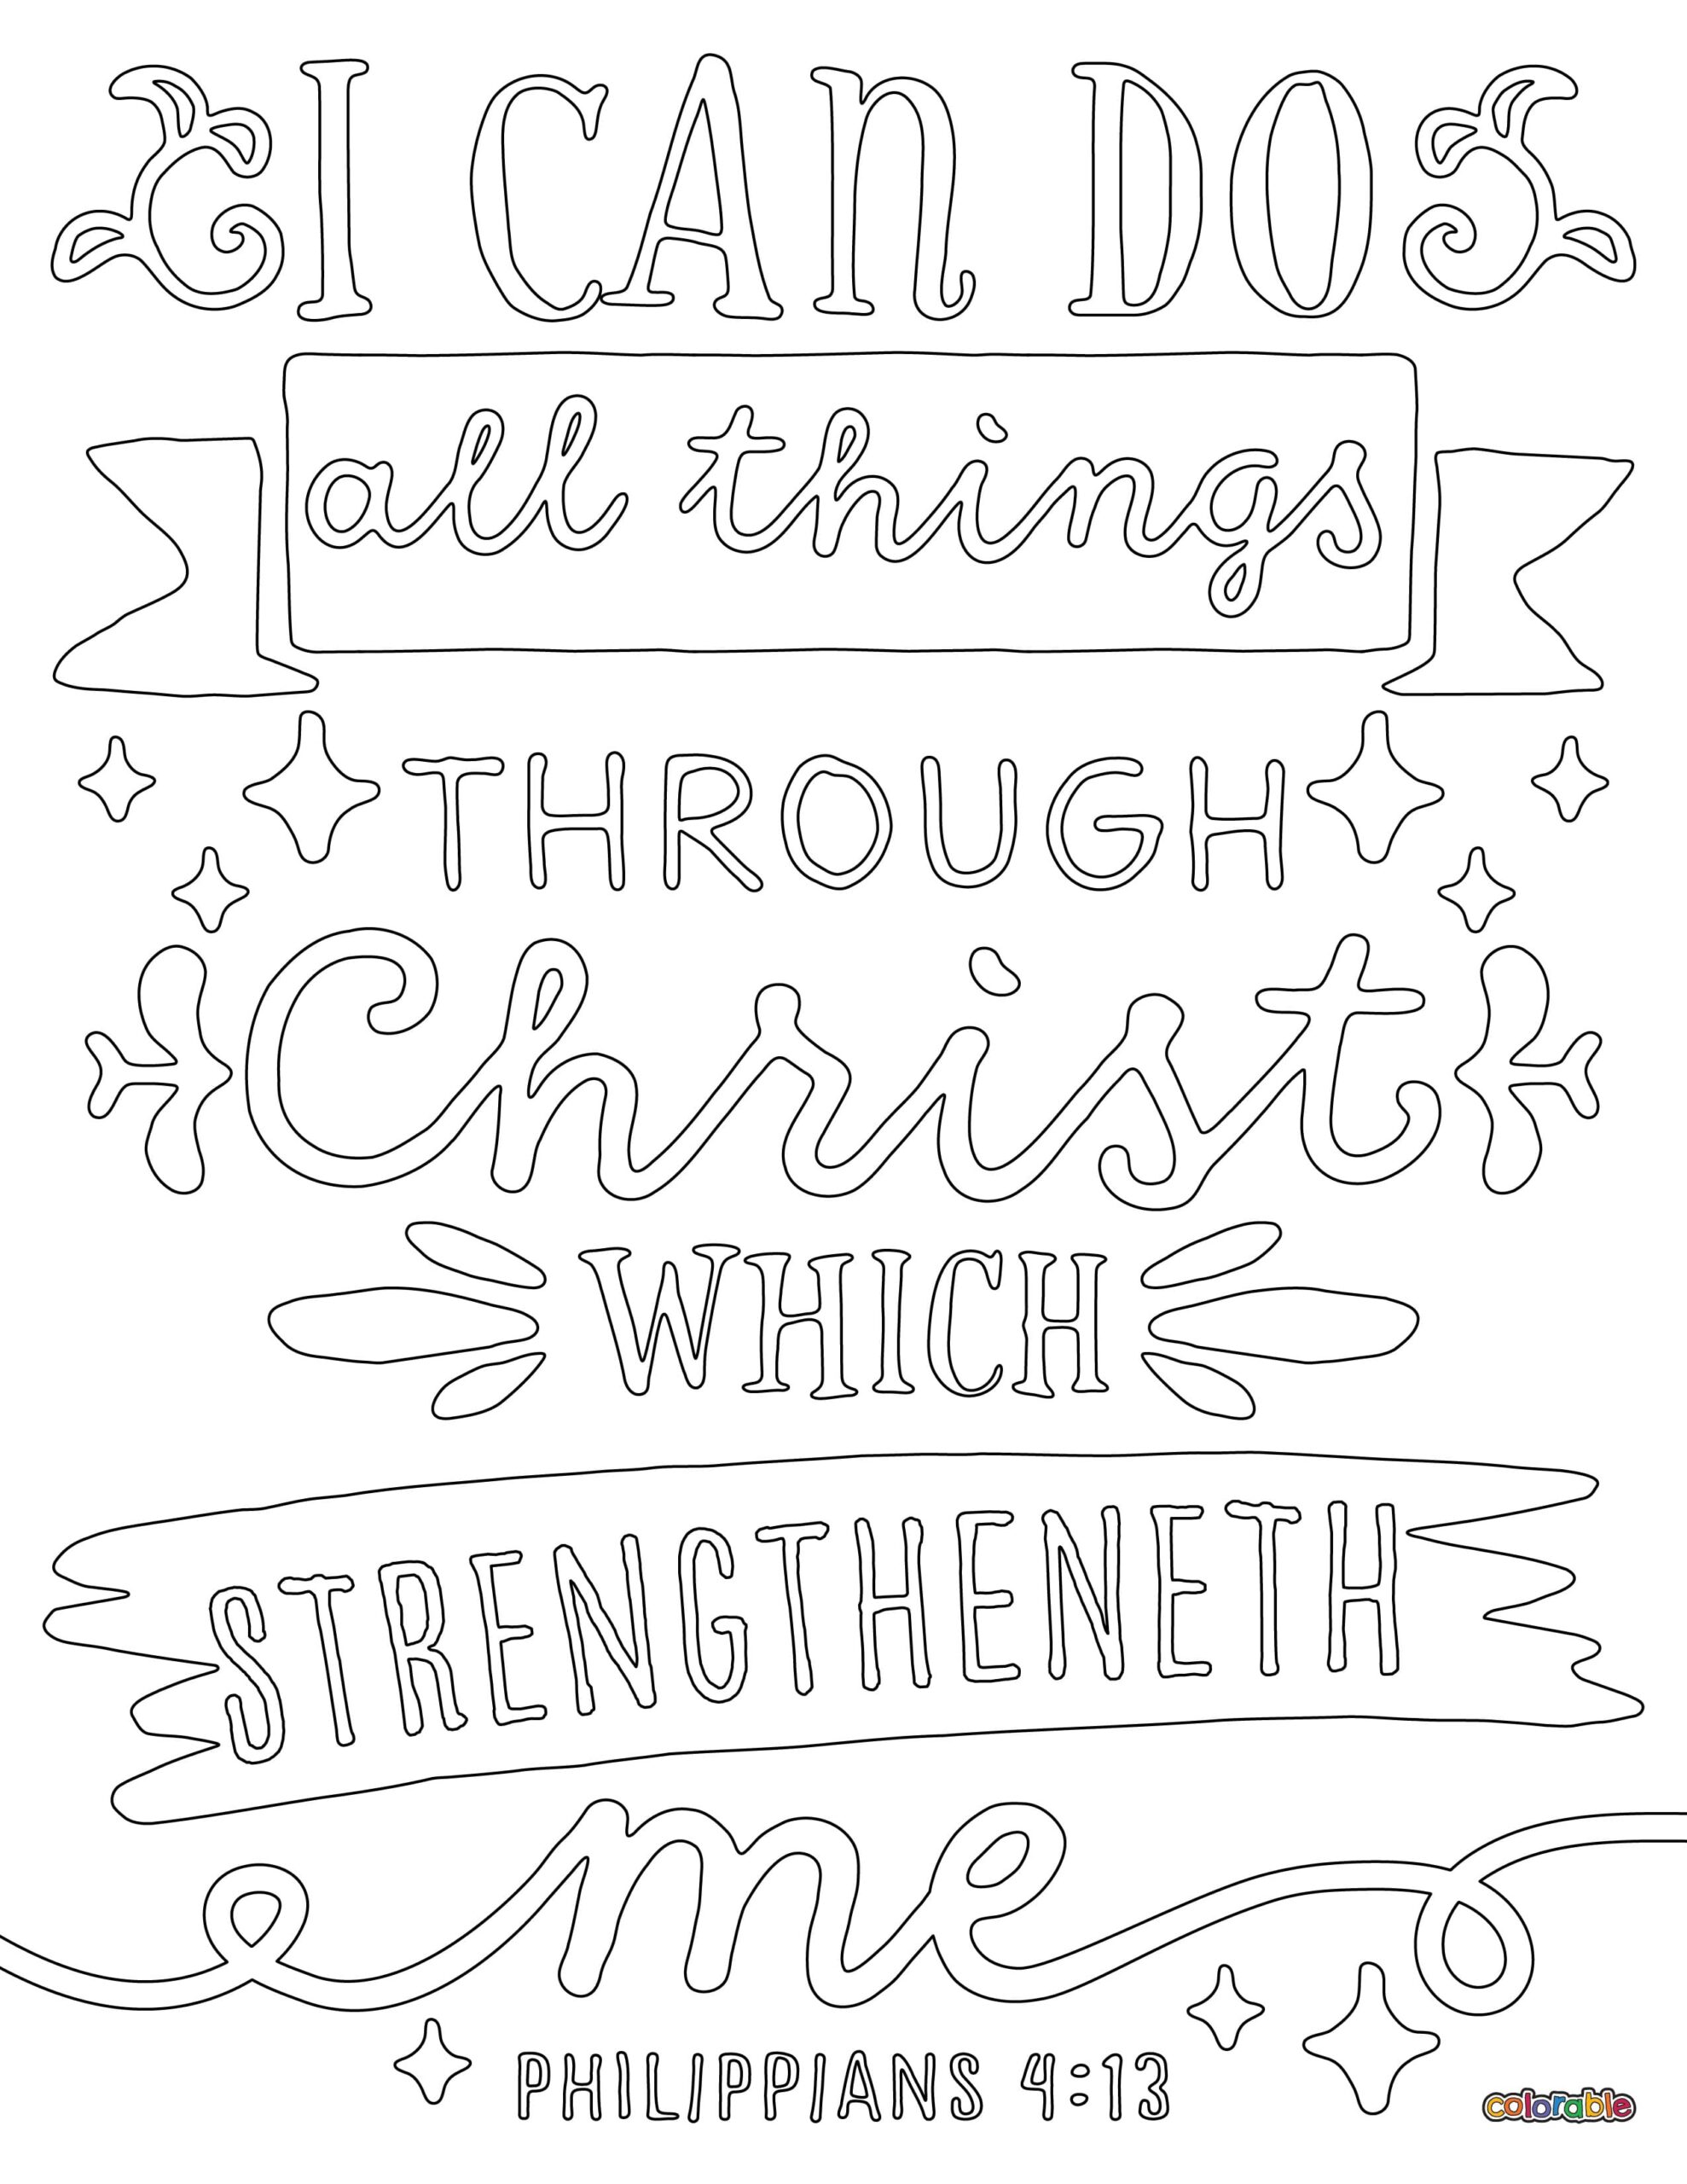 I CAN DO
all things
THROUGH
Christ
WHICH
STRENGTHENETH
me
PHILIPPIANS 4:13
colorable